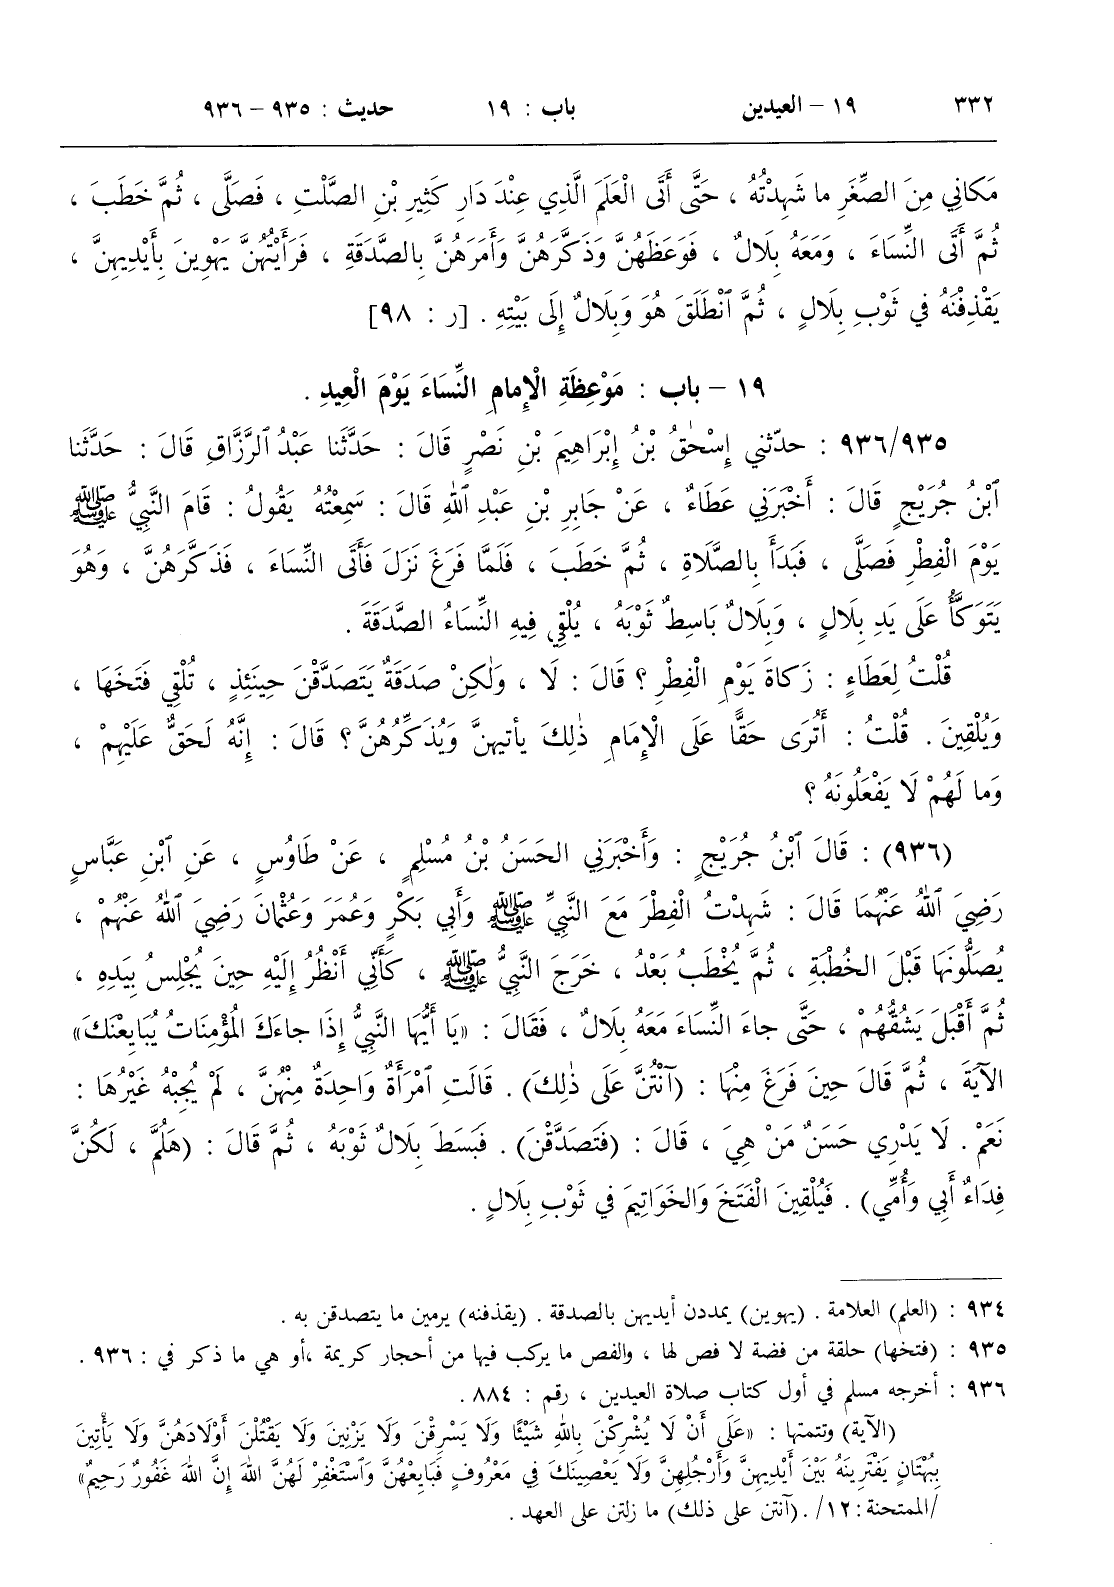 ٣٣٢ ١٩ – العيدين باب : ١٩ حديث : ٩٣٥ – ٩٣٦
مَكانِي مِنَ الصِّغَرِ ما شَهِدْتُهُ ، حَتَّى أَتَى الْعَلَمَ الَّذِي عِنْدَ دَارِ كَثِيرِ بْنِ الصَّلْتِ ، فَصَلَّى ، ثُمَّ خَطَبَ ،
ثُمَّ أَتَى النِّسَاءَ ، وَمَعَهُ بِلَالٌ ، فَوَعَظَهُنَّ وَذَكَّرَهُنَّ وَأَمَرَهُنَّ بِالصَّدَقَةِ ، فَرَأَيْتُهُنَّ يَهْوِينَ بِأَيْدِيهِنَّ ،
يَقْذِفْنَهُ في ثَوْبِ بِلَالٍ ، ثُمَّ ٱنْطَلَقَ هُوَ وَبِلَالٌ إِلَى بَيْتِهِ . [ر : ٩٨]
١٩ – باب : مَوْعِظَةِ الْإِمامِ النِّسَاءَ يَوْمَ الْعِيدِ .
٩٣٦/٩٣٥ : حدّثني إِسْحٰقُ بْنُ إِبْرَاهِيمَ بْنِ نَصْرٍ قَالَ : حَدَّثَنا عَبْدُ ٱلرَّزَّاقِ قَالَ : حَدَّثَنا
ٱبْنُ جُرَيْجٍ قَالَ : أَخْبَرَنِي عَطَاءٌ ، عَنْ جَابِرِ بْنِ عَبْدِ ٱللهِ قَالَ : سَمِعْتُهُ يَقُولُ : قَامَ النَّبِيُّ ﷺ
يَوْمَ الْفِطْرِ فَصَلَّى ، فَبَدَأَ بِالصَّلَاةِ ، ثُمَّ خَطَبَ ، فَلَمَّا فَرَغَ نَزَلَ فَأَتَى النِّسَاءَ ، فَذَكَّرَهُنَّ ، وَهُوَ
يَتَوَكَّأُ عَلَى يَدِ بِلَالٍ ، وَبِلَالٌ بَاسِطٌ ثَوْبَهُ ، يُلْقِي فِيهِ النِّسَاءُ الصَّدَقَةَ .
قُلْتُ لِعَطَاءٍ : زَكاةَ يَوْمِ الْفِطْرِ ؟ قَالَ : لَا ، وَلٰكِنْ صَدَقَةٌ يَتَصَدَّقْنَ حِينَئِذٍ ، تُلْقِي فَتَخَهَا ،
وَيُلْقِينَ . قُلْتُ : أَتُرَى حَقًّا عَلَى الْإِمامِ ذٰلِكَ يأتيهنَّ وَيُذَكِّرُهُنَّ ؟ قَالَ : إِنَّهُ لَحَقٌّ عَلَيْهِمْ ،
وَما لَهُمْ لَا يَفْعَلُونَهُ ؟
(٩٣٦) : قَالَ ٱبْنُ جُرَيْجٍ : وَأَخْبَرَنِي الحَسَنُ بْنُ مُسْلِمٍ ، عَنْ طَاوُسٍ ، عَنِ ٱبْنِ عَبَّاسٍ
رَضِيَ ٱللهُ عَنْهُمَا قَالَ : شَهِدْتُ الْفِطْرَ مَعَ النَّبِيِّ ﷺ وَأَبِي بَكْرٍ وَعُمَرَ وَعُثْمَانَ رَضِيَ ٱللهُ عَنْهُمْ ،
يُصَلُّونَهَا قَبْلَ الخُطْبَةِ ، ثُمَّ يُخْطَبُ بَعْدُ ، خَرَجَ النَّبِيُّ ﷺ ، كَأَنِّي أَنْظُرُ إِلَيْهِ حِينَ يُجْلِسُ بِيَدِهِ ،
ثُمَّ أَقْبَلَ يَشُقُّهُمْ ، حَتَّى جاءَ النِّسَاءَ مَعَهُ بِلَالٌ ، فَقَالَ : «يَا أَيُّهَا النَّبِيُّ إِذَا جاءَكَ المُؤْمِنَاتُ يُبَايِعْنَكَ»
الآيَةَ ، ثُمَّ قَالَ حِينَ فَرَغَ مِنْهَا : (آنْتُنَّ عَلَى ذٰلِكَ) . قَالَتِ ٱمْرَأَةٌ وَاحِدَةٌ مِنْهُنَّ ، لَمْ يُجِبْهُ غَيْرُهَا :
نَعَمْ . لَا يَدْرِي حَسَنٌ مَنْ هِيَ ، قَالَ : (فَتَصَدَّقْنَ) . فَبَسَطَ بِلَالٌ ثَوْبَهُ ، ثُمَّ قَالَ : (هَلُمَّ ، لَكُنَّ
فِدَاءٌ أَبِي وَأُمِّي) . فَيُلْقِينَ الْفَتَخَ وَالخَوَاتِيمَ في ثَوْبِ بِلَالٍ .
٩٣٤ : (العلم) العلامة . (يهوين) يمددن أيديهن بالصدقة . (يقذفنه) يرمين ما يتصدقن به .
٩٣٥ : (فتخها) حلقة من فضة لا فص لها ، والفص ما يركب فيها من أحجار كريمة ،أو هي ما ذكر في : ٩٣٦ .
٩٣٦ : أخرجه مسلم في أول كتاب صلاة العيدين ، رقم : ٨٨٤ .
(الآية) وتتمتها : «عَلَى أَنْ لَا يُشْرِكْنَ بِاللهِ شَيْئًا وَلَا يَسْرِقْنَ وَلَا يَزْنِينَ وَلَا يَقْتُلْنَ أَوْلَادَهُنَّ وَلَا يَأْتِينَ
بِبُهْتَانٍ يَفْتَرِينَهُ بَيْنَ أَيْدِيهِنَّ وَأَرْجُلِهِنَّ وَلَا يَعْصِينَكَ فِي مَعْرُوفٍ فَبَايِعْهُنَّ وَٱسْتَغْفِرْ لَهُنَّ اللهَ إِنَّ اللهَ غَفُورٌ رَحِيمٌ»
/الممتحنة : ١٢/ . (آنتن على ذلك) ما زلتن على العهد .